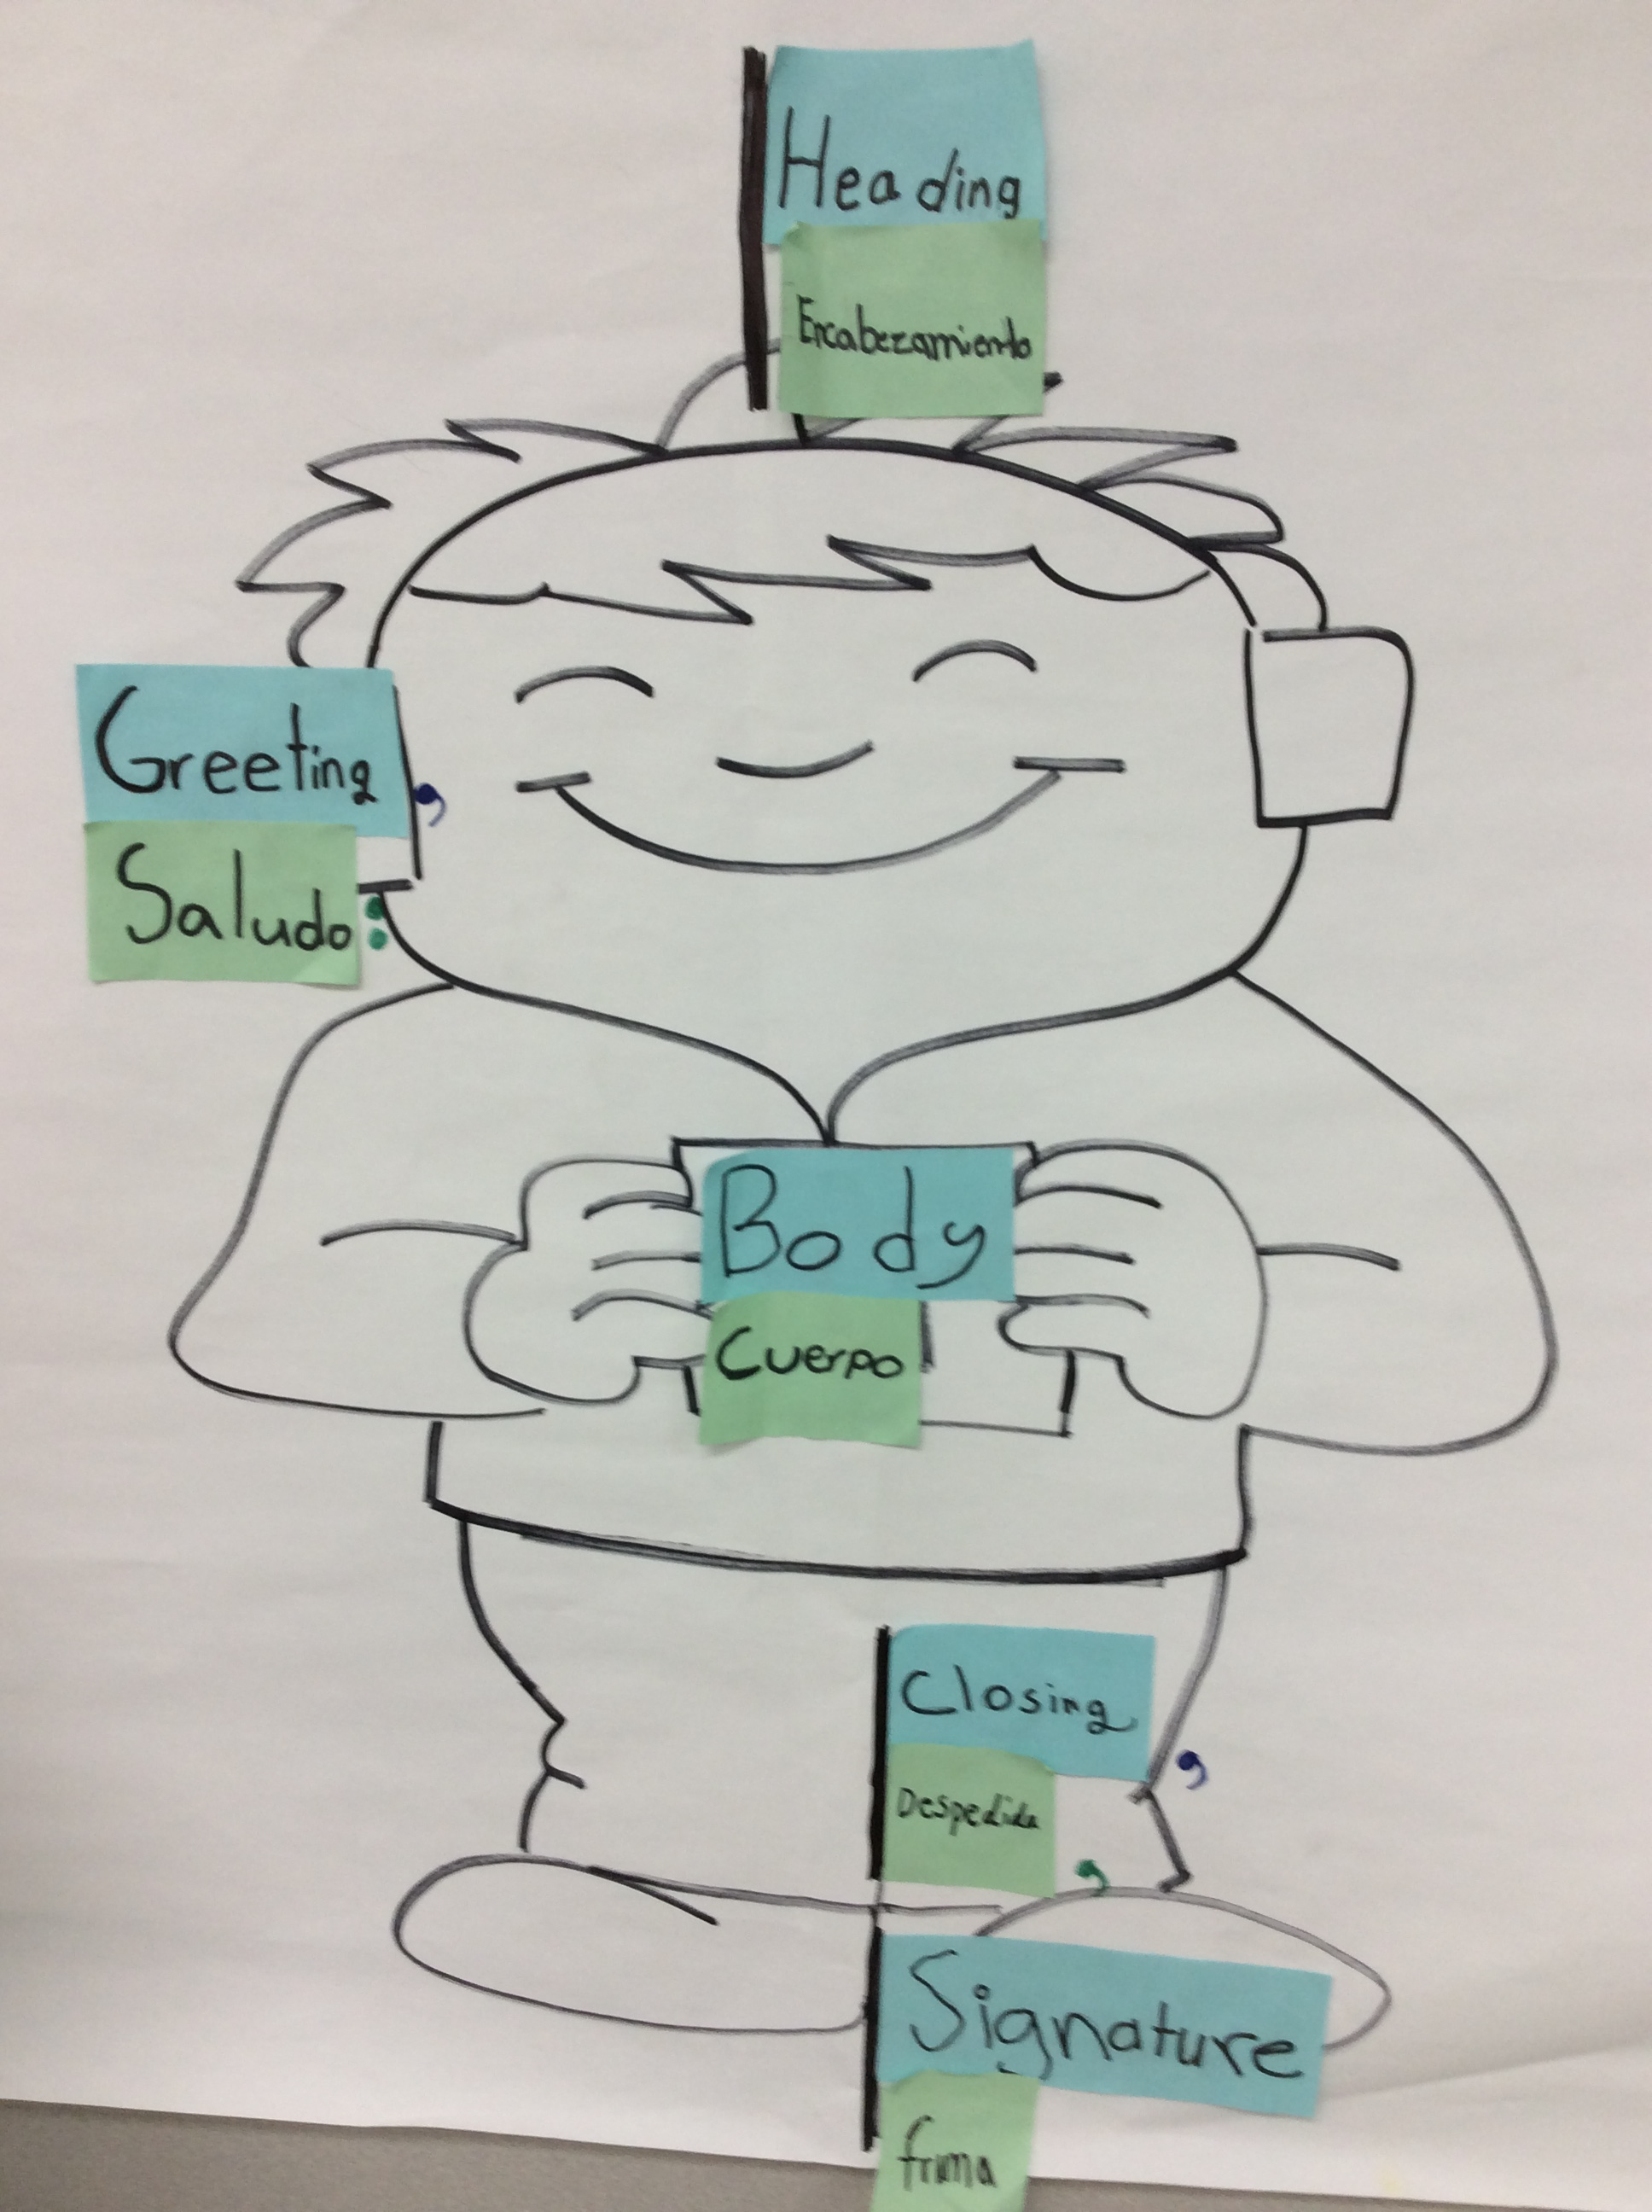 Heading
Encabezamiento
Greeting,
Saludo:
Body
Cuerpo
Closing,
Despedida,
Signature
frima